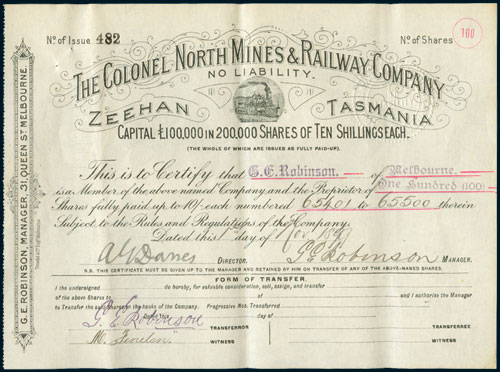 No. of Issue 482
No. of Shares 100
THE COLONEL NORTH MINES & RAILWAY COMPANY
NO LIABILITY.
ZEEHAN TASMANIA
CAPITAL £100,000 IN 200,000 SHARES OF TEN SHILLINGS EACH.
(THE WHOLE OF WHICH ARE ISSUED AS FULLY PAID-UP).
This is to Certify that G.E. Robinson. of Melbourne.
is a Member of the above named Company and the Proprietor of One Hundred (100)
Shares fully paid up to 10/- each numbered 65401 to 65500 therein
Subject to the Rules and Regulations of the Company.
Dated this day of Nov 189
DIRECTOR. G E Robinson MANAGER.
N.B. THIS CERTIFICATE MUST BE GIVEN UP TO THE MANAGER AND RETAINED BY HIM ON TRANSFER OF ANY OF THE ABOVE-NAMED SHARES.
FORM OF TRANSFER.
I the undersigned do hereby, for valuable consideration, sell, assign, and transfer
of the above Shares to of and I authorise the Manager
to Transfer the said Shares in the books of the Company. Progressive No. Transferred
Dated this day of
G. E. Robinson TRANSFERROR TRANSFEREE
WITNESS WITNESS
G. E. ROBINSON, MANAGER, 31, QUEEN ST MELBOURNE.